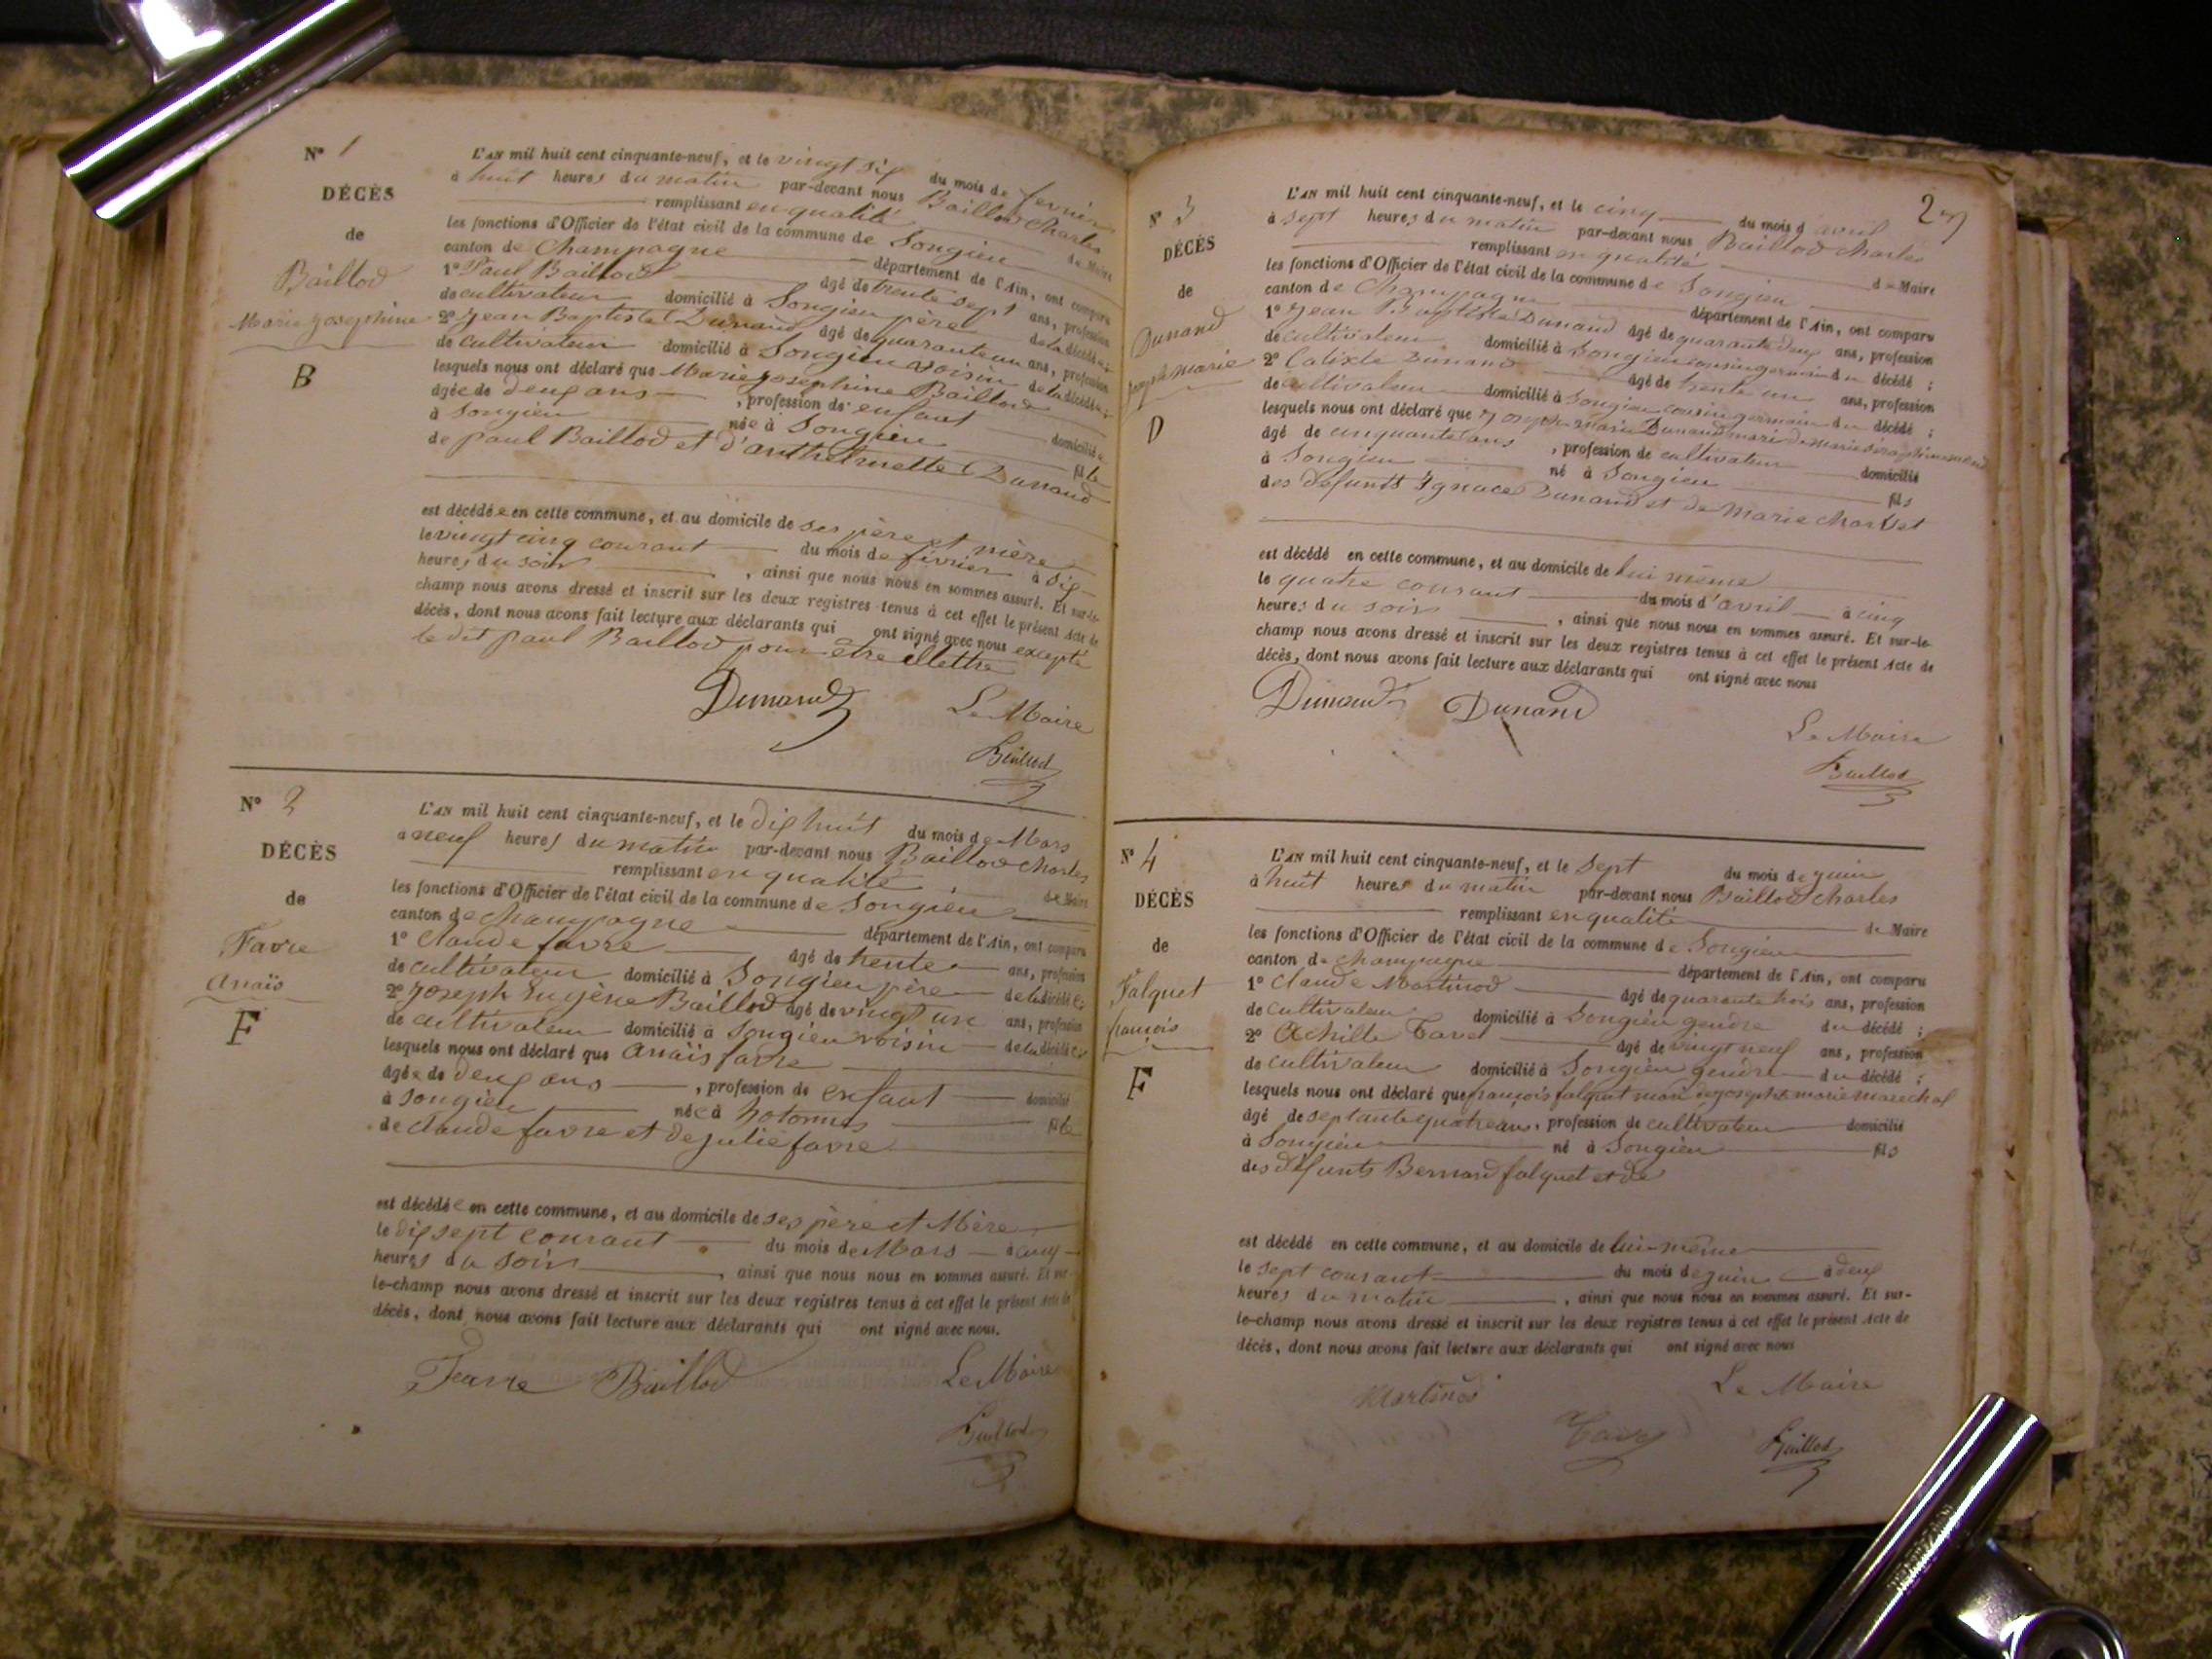 N° 1
DÉCÈS
de
Baillod
Marie Josephine
B
L'AN mil huit cent cinquante-neuf, et le vingt six du mois de fevrier
à huit heures du matin par-devant nous Baillod Charles
remplissant en qualité de Maire
les fonctions d'Officier de l'état civil de la commune de Songieu
canton de Champagne département de l'Ain, ont comparu
1° Paul Baillod âgé de trente sept ans, profession
de cultivateur domicilié à Songieu père de la décédée;
2° Jean Baptiste Dunand âgé de quarante un ans, profession
de cultivateur domicilié à Songieu voisin de la décédée;
lesquels nous ont déclaré que Marie Josephine Baillod
âgée de deux ans, profession de enfant domiciliée
à Songieu née à Songieu fille
de paul Baillod et d'anthelmette Dunand
est décédée en cette commune, et au domicile de ses père et mère
le vingt cinq courant du mois de février à six
heures du soir, ainsi que nous nous en sommes assuré. Et sur-le-
champ nous avons dressé et inscrit sur les deux registres tenus à cet effet le présent Acte de
décès, dont nous avons fait lecture aux déclarants qui ont signé avec nous excepté
le dit paul Baillod pour être illettré
Dunand Le Maire
Baillod
N° 2
DÉCÈS
de
Favre
Anaïs
F
L'AN mil huit cent cinquante-neuf, et le dix huit du mois de Mars
à neuf heures du matin par-devant nous Baillod Charles
remplissant en qualité de Maire
les fonctions d'Officier de l'état civil de la commune de Songieu
canton de Champagne département de l'Ain, ont comparu
1° Claude favre âgé de trente ans, profession
de cultivateur domicilié à Songieu père de la décédée;
2° Joseph Eugène Baillod âgé de vingt un ans, profession
de cultivateur domicilié à Songieu voisin de la décédée;
lesquels nous ont déclaré que Anaïs favre
âgée de deux ans, profession de enfant domicilié
à Songieu née à hotonnes fille
de Claude favre et de julie favre
est décédée en cette commune, et au domicile de ses père et Mère
le dix sept courant du mois de Mars à cinq
heures du soir, ainsi que nous nous en sommes assuré. Et sur-
le-champ nous avons dressé et inscrit sur les deux registres tenus à cet effet le présent Acte de
décès, dont nous avons fait lecture aux déclarants qui ont signé avec nous.
Favre Baillod Le Maire
Baillod
2
N° 3
DÉCÈS
de
Dunand
Joseph Marie
D
L'AN mil huit cent cinquante-neuf, et le cinq du mois d'avril
à sept heures du matin par-devant nous Baillod Charles
remplissant en qualité de Maire
les fonctions d'Officier de l'état civil de la commune de Songieu
canton de Champagne département de l'Ain, ont comparu
1° Jean Baptiste Dunand âgé de quarante deux ans, profession
de cultivateur domicilié à Songieu cousin germain du décédé;
2° Calixte Dunand âgé de trente un ans, profession
de cultivateur domicilié à Songieu cousin germain du décédé;
lesquels nous ont déclaré que Joseph marie Dunand mari de marie
âgé de cinquante ans, profession de cultivateur domicilié
à Songieu né à Songieu fils
des défunts Ignace Dunand et de Marie Charvet
est décédé en cette commune, et au domicile de lui même
le quatre courant du mois d'avril à cinq
heures du soir, ainsi que nous nous en sommes assuré. Et sur-le-
champ nous avons dressé et inscrit sur les deux registres tenus à cet effet le présent Acte de
décès, dont nous avons fait lecture aux déclarants qui ont signé avec nous
Dunand Dunand
Le Maire
Baillod
N° 4
DÉCÈS
de
Falquet
françois
F
L'AN mil huit cent cinquante-neuf, et le sept du mois de juin
à huit heures du matin par-devant nous Baillod Charles
remplissant en qualité de Maire
les fonctions d'Officier de l'état civil de la commune de Songieu
canton de Champagne département de l'Ain, ont comparu
1° Claude Martinod âgé de quarante trois ans, profession
de cultivateur domicilié à Songieu gendre du décédé;
2° Achille Tavel âgé de vingt neuf ans, profession
de cultivateur domicilié à Songieu gendre du décédé;
lesquels nous ont déclaré que françois falquet mari de josephe marie marechal
âgé de septante quatre ans, profession de cultivateur domicilié
à Songieu né à Songieu fils
des défunts Bernard falquet et de
est décédé en cette commune, et au domicile de lui-même
le sept courant du mois de juin à deux
heures du matin, ainsi que nous nous en sommes assuré. Et sur-
le-champ nous avons dressé et inscrit sur les deux registres tenus à cet effet le présent Acte de
décès, dont nous avons fait lecture aux déclarants qui ont signé avec nous
Martinod Le Maire
Baillod